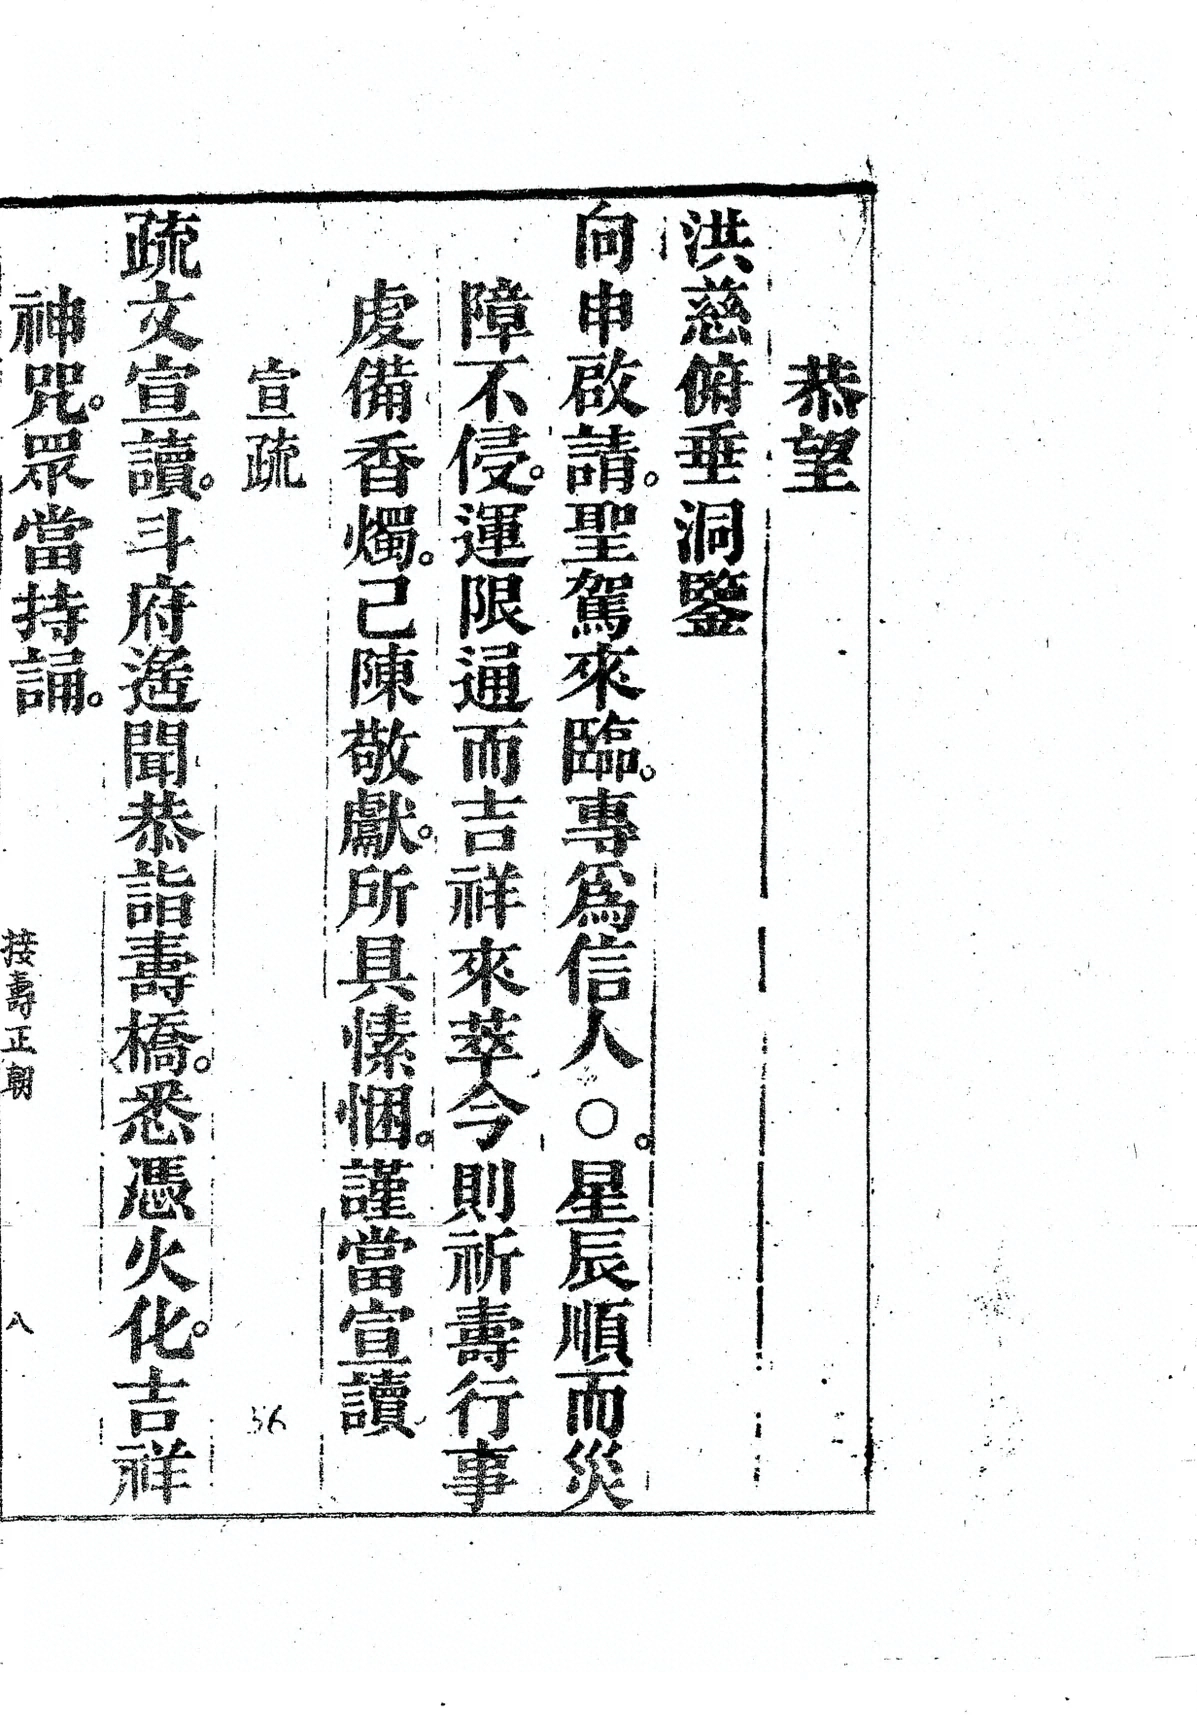 恭望
洪慈俯垂洞鑒
向申啟請。聖駕來臨。專爲信人○。星辰順而災
障不侵。運限通而吉祥來萃今則祈壽行事
虔備香燭。己陳敬獻。所具愫悃。謹當宣讀
宣疏
疏文宣讀。斗府遙聞恭詣壽橋。悉憑火化。吉祥
神咒。眾當持誦。
接壽正朝
八
56